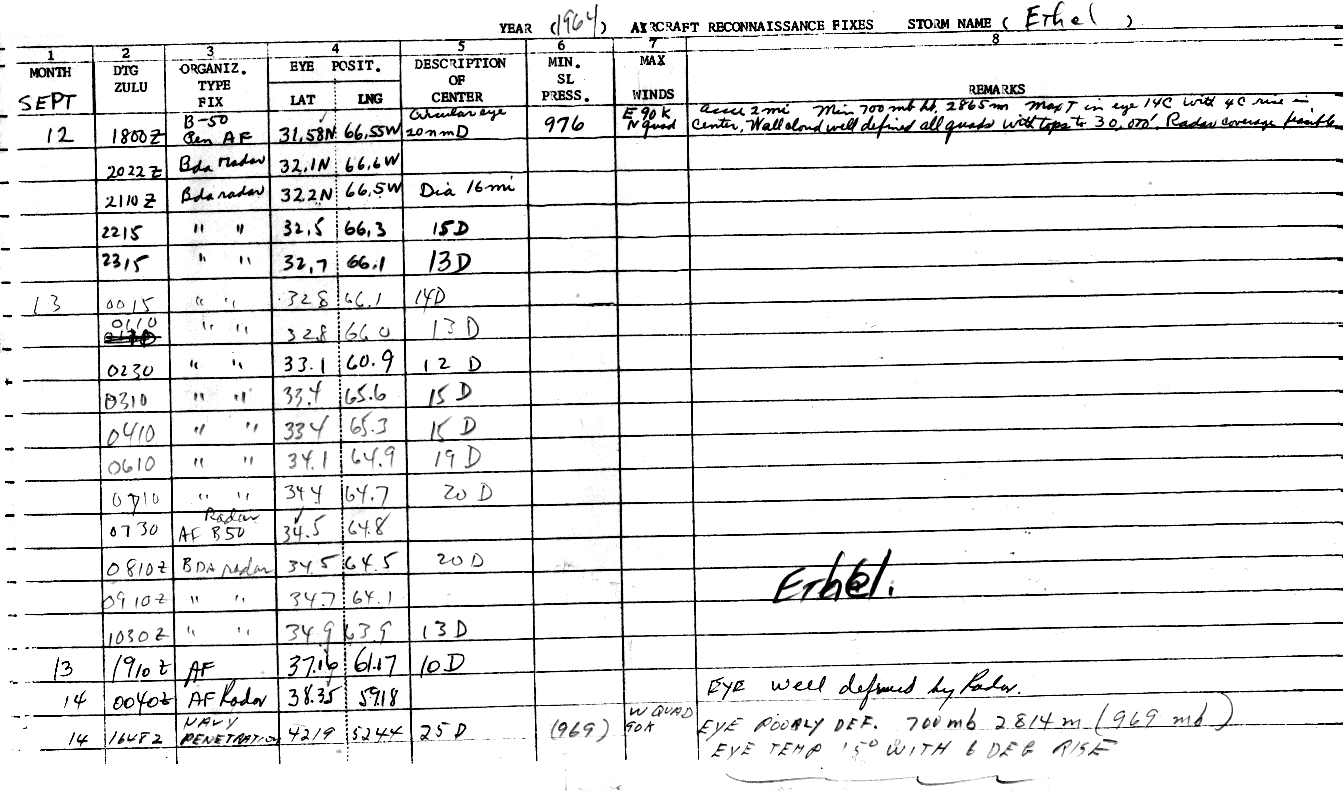 YEAR (1964) AIRCRAFT RECONNAISSANCE FIXES STORM NAME (Ethel)
1 2 3 4 5 6 7 8
MONTH DTG ZULU ORGANIZ. TYPE FIX EYE POSIT. LAT LNG DESCRIPTION OF CENTER MIN. SL PRESS. MAX WINDS REMARKS
SEPT
12 1800Z B-50 Pen AF 31.58N 66.55W Circular eye 20nmD 976 E 90K N Quad Accu 2mi Min 700 mb ht. 2865m Max T in eye 14C with 4C rise in center, Wall cloud well defined all quads with tops to 30,000'. Radar coverage
2022Z Bda radar 32.1N 66.6W
2110Z Bda radar 32.2N 66.5W Dia 16mi
2215 " " 32.5 66.3 15D
2315 " " 32.7 66.1 13D
13 0015 " " 328 66.1 14D
0110 " " 328 66.0 13 D
0230 " " 33.1 60.9 12 D
0310 " " 33.4 65.6 15 D
0410 " " 334 65.3 15 D
0610 " " 34.1 64.9 19 D
0710 " " 344 64.7 20 D
0730 AF B50 Radar 34.5 64.8
0810Z BDA radar 34.5 64.5 20D
Ethel.
0910Z " " 34.7 64.1
1030Z " " 34.9 63.9 13 D
13 1910Z AF 37.16 61.17 10D
14 0040Z AF Radar 38.35 5918 EYE well defined by Radar.
14 1648Z NAVY PENETRATION 4219 5244 25 D (969) W QUAD 90K EYE POORLY DEF. 700mb 2814m (969 mb)
EYE TEMP 15° WITH 6 DEG RISE